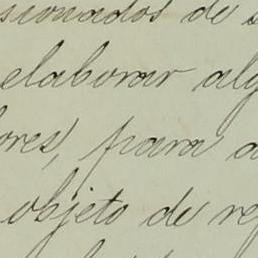 sionados de s
elaborar alg
ores, para a
objeto de re